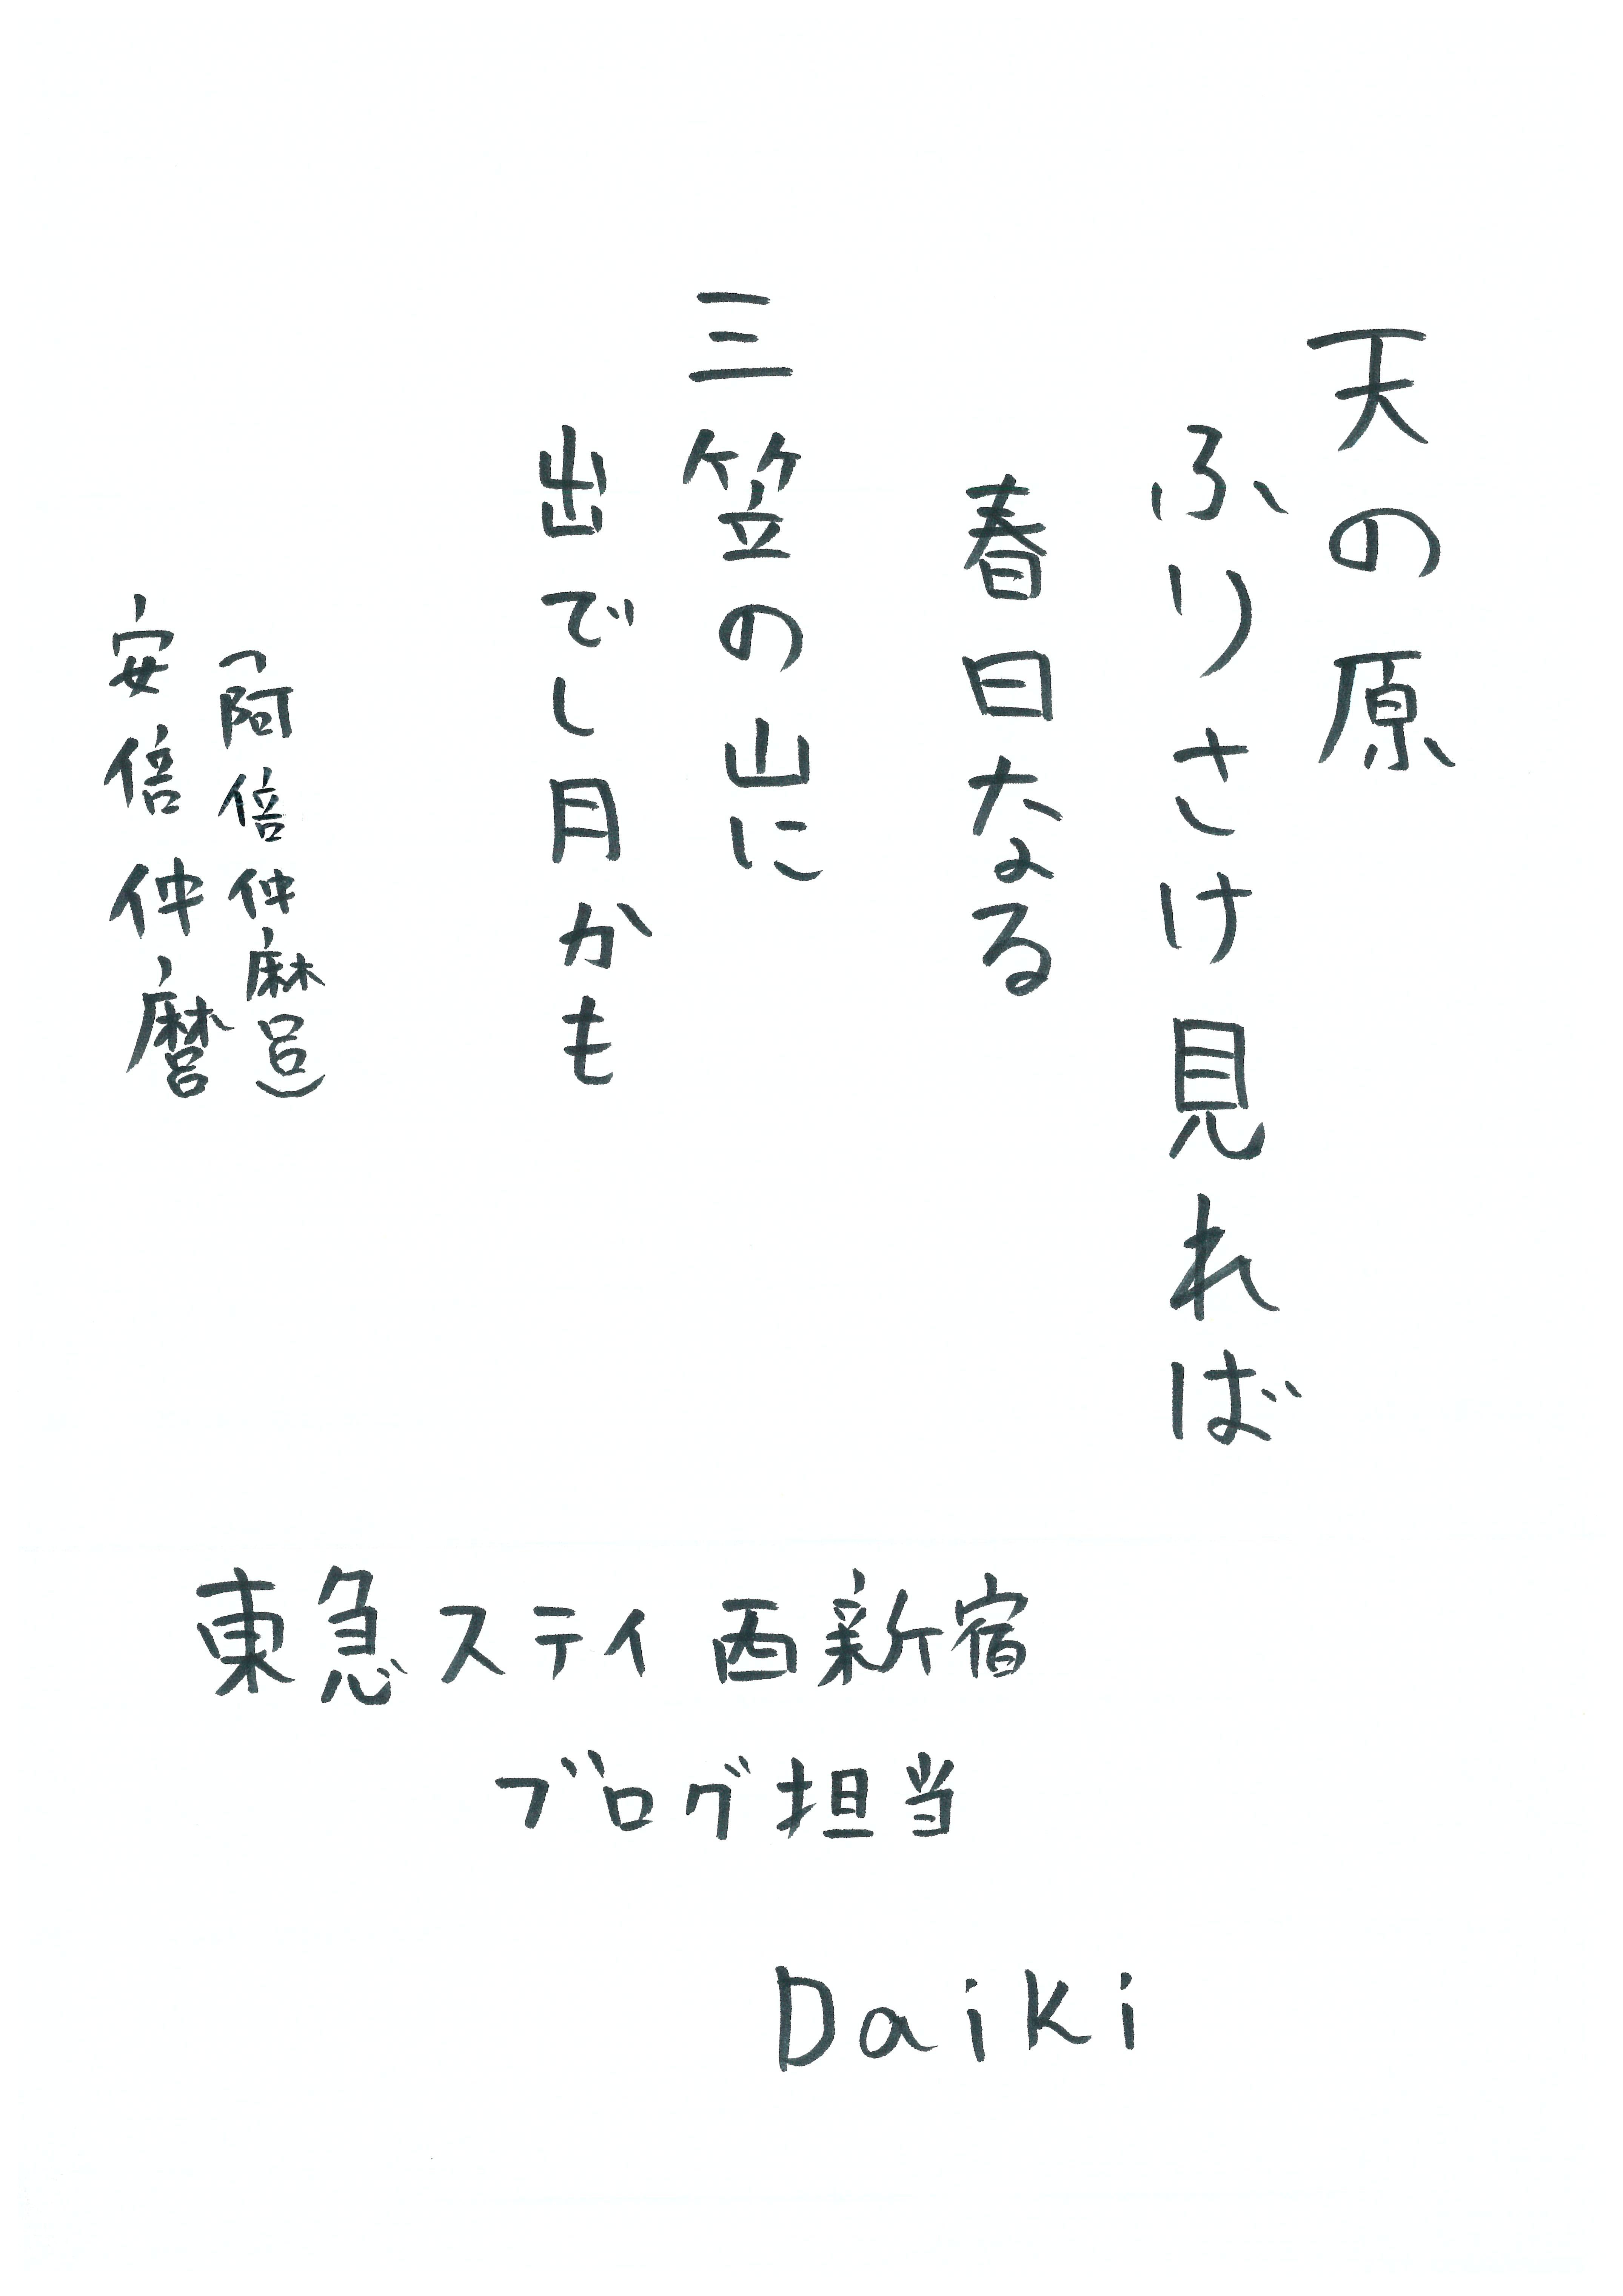 天の原
ふりさけ見れば
春日なる
三笠の山に
出でし月かも
(阿倍仲麻呂)
安倍仲麿
東急ステイ西新宿
ブログ担当
Daiki